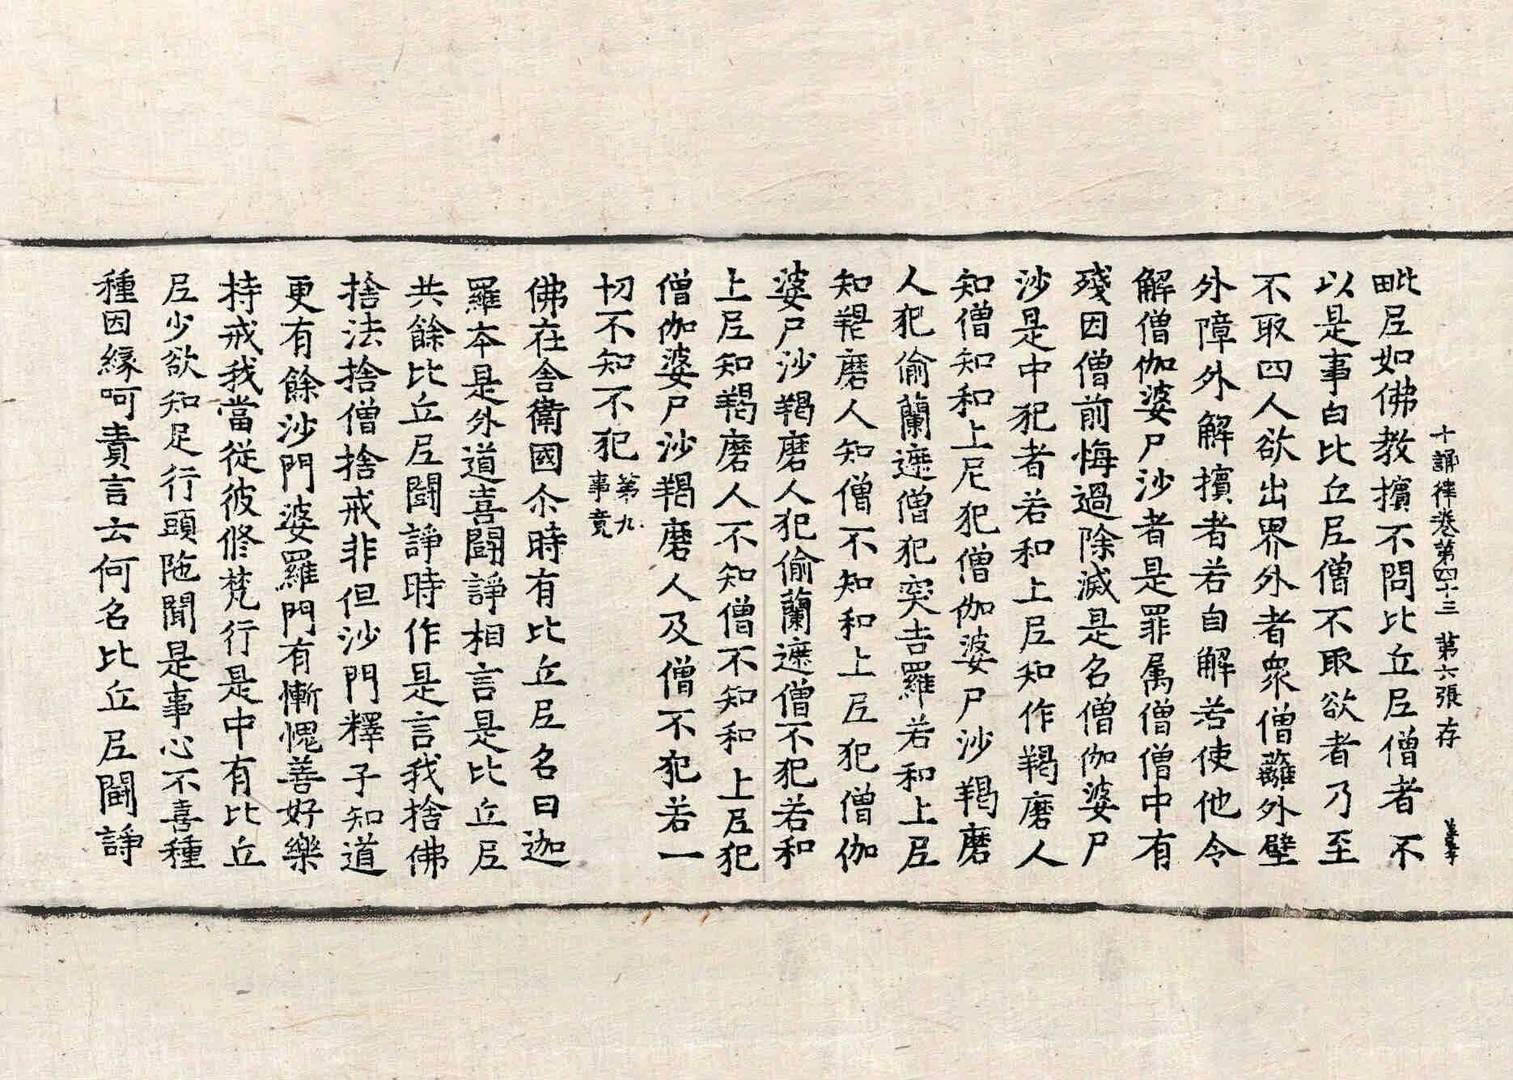 十誦律卷第四十三　第六張　存
毗尼如佛教擯不問比丘尼僧者不
以是事白比丘尼僧不取欲者乃至
不取四人欲出界外者衆僧籬外壁
外障外解擯者若自解若使他令
解僧伽婆尸沙者是罪属僧僧中有
殘因僧前悔過除滅是名僧伽婆尸
沙是中犯者若和上尼知作羯磨人
知僧知和上尼犯僧伽婆尸沙羯磨
人犯偷蘭遮僧犯突吉羅若和上尼
知羯磨人知僧不知和上尼犯僧伽
婆尸沙羯磨人犯偷蘭遮僧不犯若和
上尼知羯磨人不知僧不知和上尼犯
僧伽婆尸沙羯磨人及僧不犯若一
切不知不犯第九事竟
佛在舍衛國尒時有比丘尼名曰迦
羅本是外道喜鬪諍相言是比丘尼
共餘比丘尼鬪諍時作是言我捨佛
捨法捨僧捨戒非但沙門釋子知道
更有餘沙門婆羅門有慚愧善好樂
持戒我當從彼修梵行是中有比丘
尼少欲知足行頭陁聞是事心不喜種
種因緣呵責言云何名比丘尼鬪諍